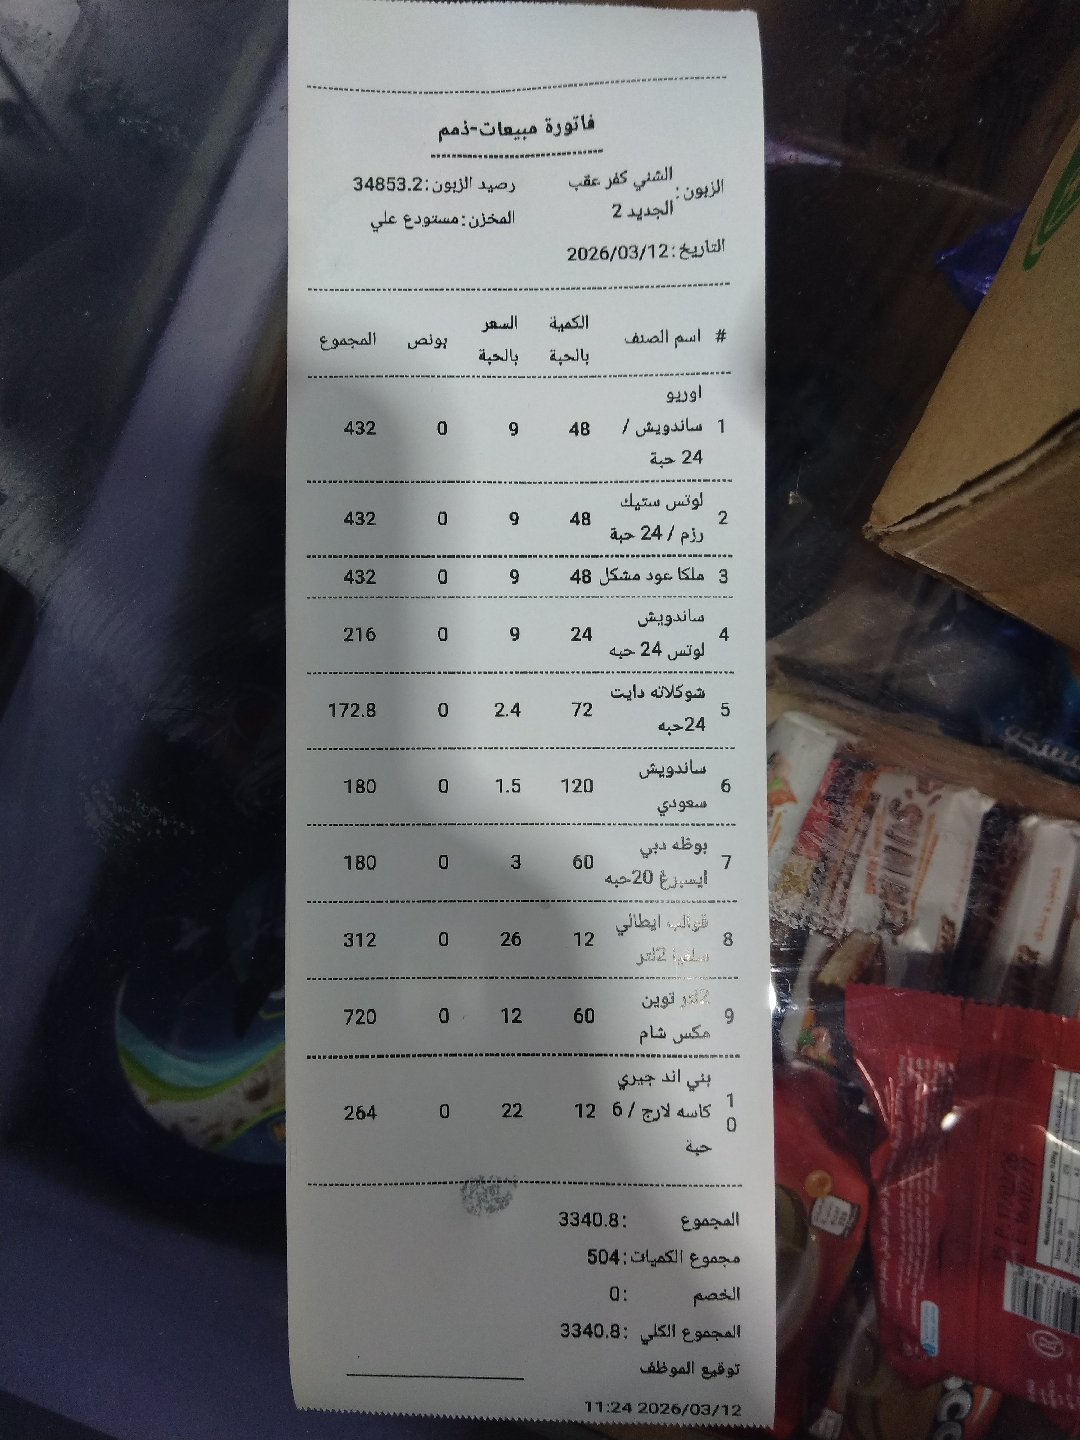 فاتورة مبيعات-ذمم
الزبون: الشني كفر عقب الجديد 2
رصيد الزبون:34853.2
المخزن:مستودع علي
التاريخ:2026/03/12
# اسم الصنف الكمية بالحبة السعر بالحبة بونص المجموع
1 اوريو ساندويش / 24 حبة 48 9 0 432
2 لوتس ستيك رزم / 24 حبة 48 9 0 432
3 ملكا عود مشكل 48 9 0 432
4 ساندويش لوتس 24 حبه 24 9 0 216
5 شوكلاته دايت 24حبه 72 2.4 0 172.8
6 ساندويش سعودي 120 1.5 0 180
7 بوظه دبي ايسبرغ 20حبه 60 3 0 180
8 قوالب ايطالي 2لتر 12 26 0 312
9 2لتر توين مكس شام 60 12 0 720
10 بني اند جيري كاسه لارج / 6 حبة 12 22 0 264
المجموع :3340.8
مجموع الكميات:504
الخصم :0
المجموع الكلي :3340.8
توقيع الموظف
11:24 2026/03/12